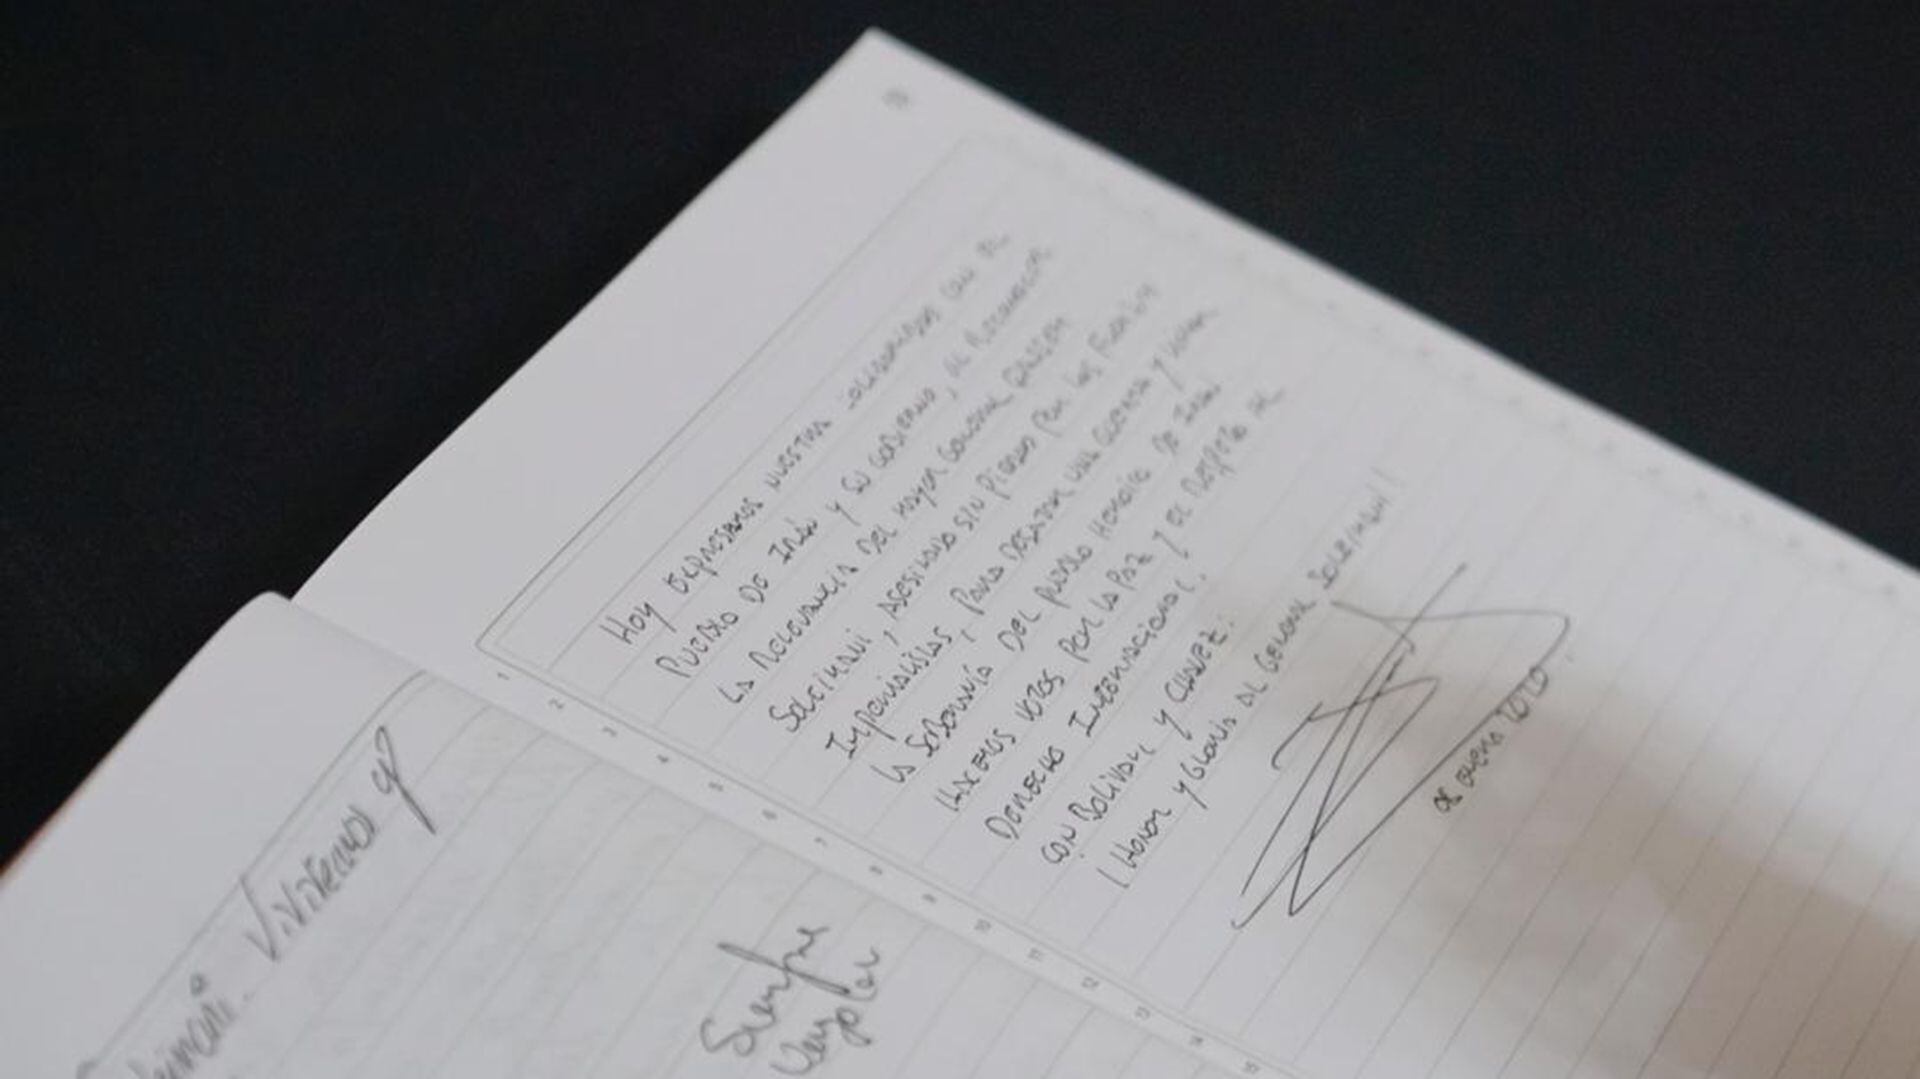 Viviremos y
Siempre
Hoy expresamos nuestra solidaridad con el
Pueblo de Irán y su Gobierno, al reconocer
La relevancia del mayor General Qasem
Soleimani, asesinado sin piedad por las fuerzas
Imperialistas, para desatar una guerra y
La soberanía del pueblo heroico de Irán
Hacemos votos por la paz y el respeto al
Derecho Internacional.
Con Bolívar y Chávez.
¡Honor y Gloria al General Soleimani!
1
2
3
4
5
6
7
8
9
10
11
12
13
14
15